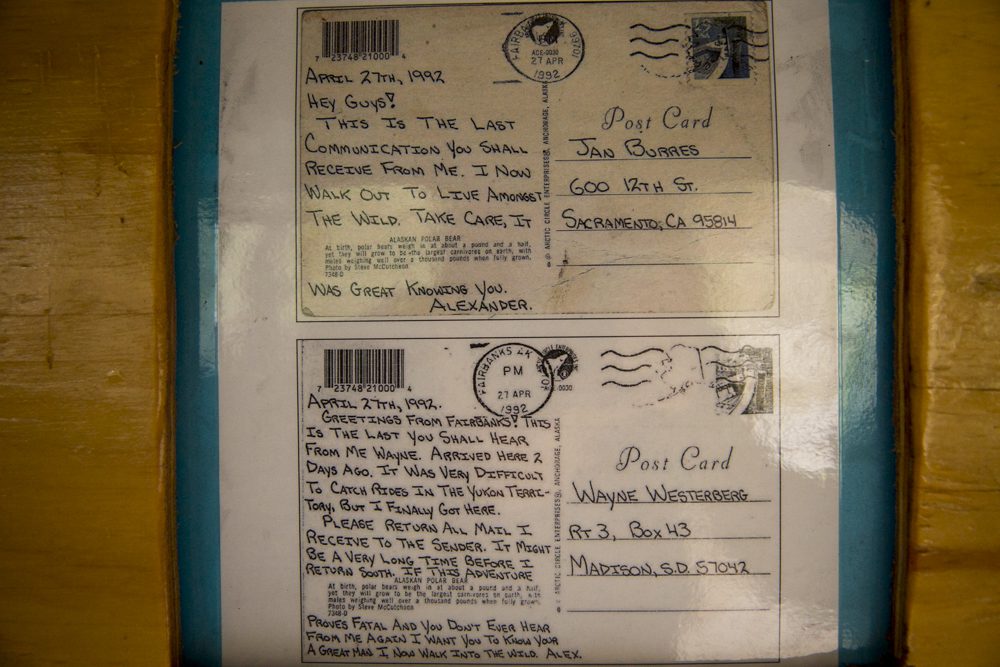 7 23748 21000 4
FAIRBANKS
99701
PM
AOE-0030
27 APR
1992
APRIL 27TH, 1992
HEY GUYS!
THIS IS THE LAST
COMMUNICATION YOU SHALL
RECEIVE FROM ME. I NOW
WALK OUT TO LIVE AMONGST
THE WILD. TAKE CARE, IT
ALASKAN POLAR BEAR
At birth, polar bears weigh in at about a pound and a half,
yet they will grow to be the largest carnivores on earth, with
males weighing well over a thousand pounds when fully grown.
Photo by Steve McCutcheon
7348-D
WAS GREAT KNOWING YOU.
ALEXANDER.
© ARCTIC CIRCLE ENTERPRISES®, ANCHORAGE, ALASKA
Post Card
JAN BURRES
600 12TH ST.
SACRAMENTO, CA 95814
7 23748 21000 4
FAIRBANKS AK
PM
27 APR
1992
0030
APRIL 27TH, 1992.
GREETINGS FROM FAIRBANKS! THIS
IS THE LAST YOU SHALL HEAR
FROM ME WAYNE. ARRIVED HERE 2
DAYS AGO. IT WAS VERY DIFFICULT
TO CATCH RIDES IN THE YUKON TERRI-
TORY, BUT I FINALLY GOT HERE.
PLEASE RETURN ALL MAIL I
RECEIVE TO THE SENDER. IT MIGHT
BE A VERY LONG TIME BEFORE I
RETURN SOUTH. IF THIS ADVENTURE
ALASKAN POLAR BEAR
At birth, polar bears weigh in at about a pound and a half,
yet they will grow to be the largest carnivores on earth, with
males weighing well over a thousand pounds when fully grown.
Photo by Steve McCutcheon
7348-D
PROVES FATAL AND YOU DON'T EVER HEAR
FROM ME AGAIN I WANT YOU TO KNOW YOUR
A GREAT MAN I, NOW WALK INTO THE WILD. ALEX.
© ARCTIC CIRCLE ENTERPRISES®, ANCHORAGE, ALASKA
Post Card
WAYNE WESTERBERG
RT 3, BOX 43
MADISON, S.D. 57042